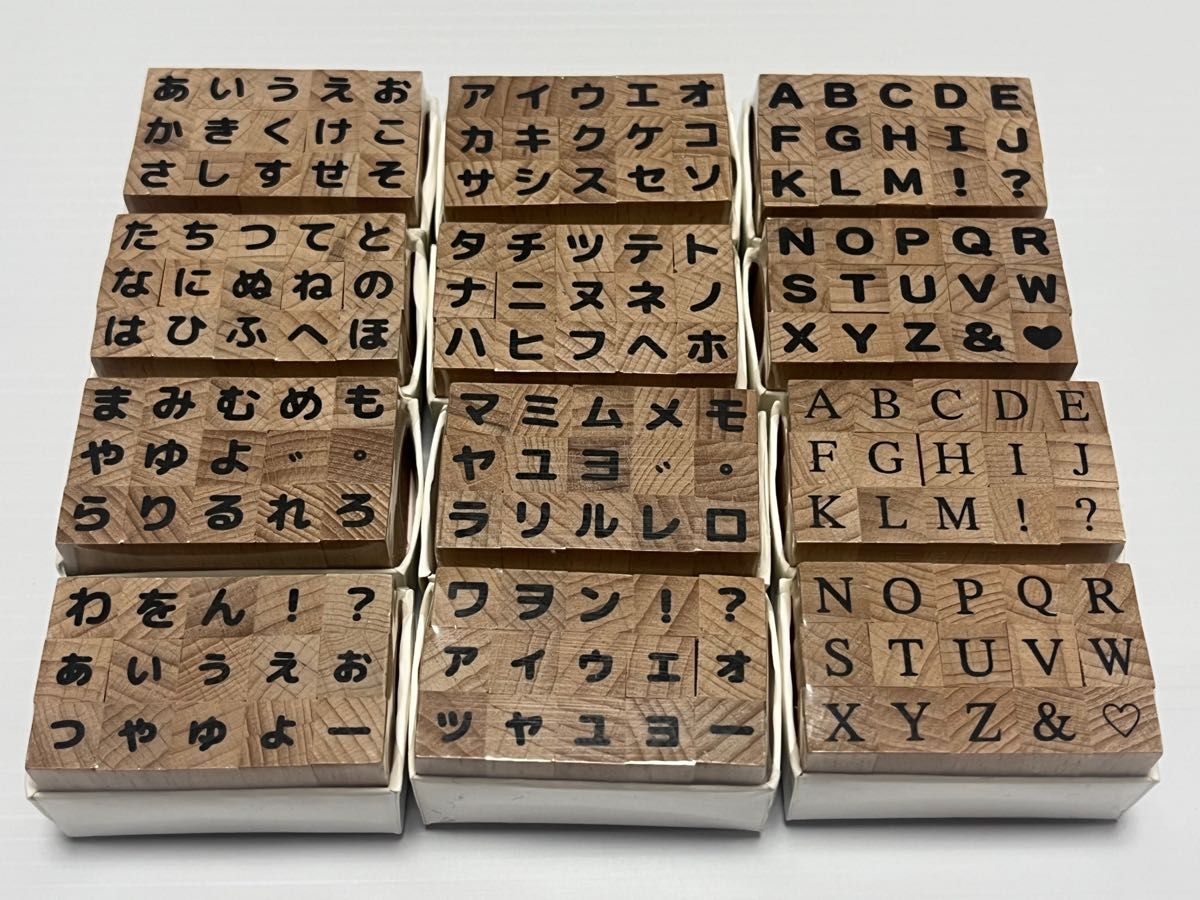 あ い う え お
か き く け こ
さ し す せ そ
た ち つ て と
な に ぬ ね の
は ひ ふ へ ほ
ま み む め も
や ゆ よ ゛ ゜
ら り る れ ろ
わ を ん ! ?
ぁ ぃ ぅ ぇ ぉ
っ ゃ ゅ ょ ー
ア イ ウ エ オ
カ キ ク ケ コ
サ シ ス セ ソ
タ チ ツ テ ト
ナ ニ ヌ ネ ノ
ハ ヒ フ ヘ ホ
マ ミ ム メ モ
ヤ ユ ヨ ゛ ゜
ラ リ ル レ ロ
ワ ヲ ン ! ?
ァ ィ ゥ ェ ォ
ッ ャ ュ ョ ー
A B C D E
F G H I J
K L M ! ?
N O P Q R
S T U V W
X Y Z & ♥
A B C D E
F G H I J
K L M ! ?
N O P Q R
S T U V W
X Y Z & ♡